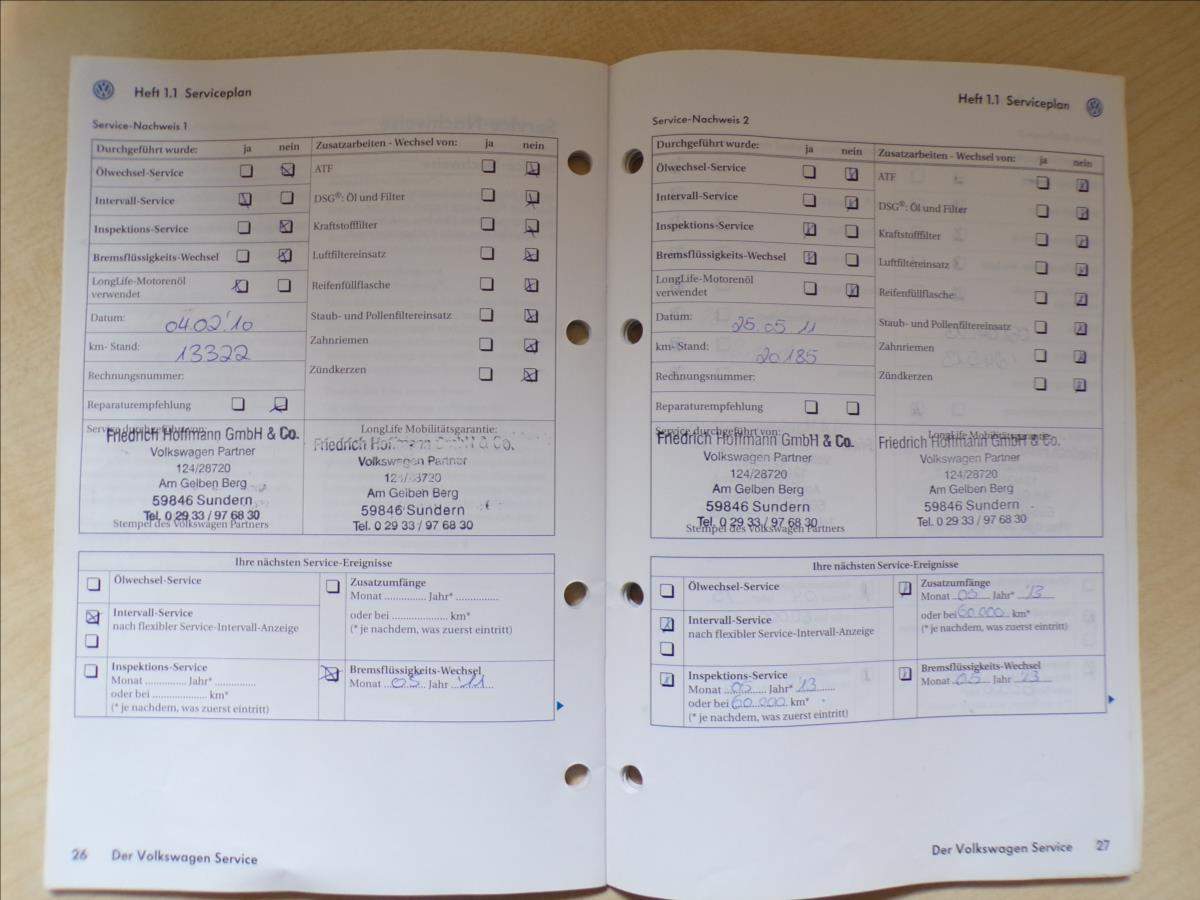 Heft 1.1 Serviceplan
Service-Nachweis 1
Durchgeführt wurde: ja nein
Ölwechsel-Service
Intervall-Service
Inspektions-Service
Bremsflüssigkeits-Wechsel
LongLife-Motorenöl
verwendet
Datum: 04.02.'10
km- Stand: 13322
Rechnungsnummer:
Reparaturempfehlung
Zusatzarbeiten - Wechsel von: ja nein
ATF
DSG®: Öl und Filter
Kraftstofffilter
Luftfiltereinsatz
Reifenfüllflasche
Staub- und Pollenfiltereinsatz
Zahnriemen
Zündkerzen
Service durchgeführt von:
Friedrich Hoffmann GmbH & Co.
Volkswagen Partner
124/28720
Am Gelben Berg
59846 Sundern
Tel. 0 29 33 / 97 68 30
Stempel des Volkswagen Partners
LongLife Mobilitätsgarantie:
Friedrich Hoffmann GmbH & Co.
Volkswagen Partner
124/28720
Am Gelben Berg
59846 Sundern
Tel. 0 29 33 / 97 68 30
Ihre nächsten Service-Ereignisse
Ölwechsel-Service
Intervall-Service
nach flexibler Service-Intervall-Anzeige
Inspektions-Service
Monat .............. Jahr* ..............
oder bei .................... km*
(* je nachdem, was zuerst eintritt)
Zusatzumfänge
Monat .............. Jahr* ..............
oder bei .................... km*
(* je nachdem, was zuerst eintritt)
Bremsflüssigkeits-Wechsel
Monat 05 Jahr '11
26 Der Volkswagen Service
Heft 1.1 Serviceplan
Service-Nachweis 2
Durchgeführt wurde: ja nein
Ölwechsel-Service
Intervall-Service
Inspektions-Service
Bremsflüssigkeits-Wechsel
LongLife-Motorenöl
verwendet
Datum: 25.05 11
km- Stand: 20.185
Rechnungsnummer:
Reparaturempfehlung
Zusatzarbeiten - Wechsel von: ja nein
ATF
DSG®: Öl und Filter
Kraftstofffilter
Luftfiltereinsatz
Reifenfüllflasche
Staub- und Pollenfiltereinsatz
Zahnriemen
Zündkerzen
Service durchgeführt von:
Friedrich Hoffmann GmbH & Co.
Volkswagen Partner
124/28720
Am Gelben Berg
59846 Sundern
Tel. 0 29 33 / 97 68 30
Stempel des Volkswagen Partners
LongLife Mobilitätsgarantie:
Friedrich Hoffmann GmbH & Co.
Volkswagen Partner
124/28720
Am Gelben Berg
59846 Sundern
Tel. 0 29 33 / 97 68 30
Ihre nächsten Service-Ereignisse
Ölwechsel-Service
Intervall-Service
nach flexibler Service-Intervall-Anzeige
Inspektions-Service
Monat 05 Jahr* '13
oder bei 60.000 km*
(* je nachdem, was zuerst eintritt)
Zusatzumfänge
Monat 05 Jahr* '13
oder bei 60.000 km*
(* je nachdem, was zuerst eintritt)
Bremsflüssigkeits-Wechsel
Monat 05 Jahr '13
Der Volkswagen Service 27